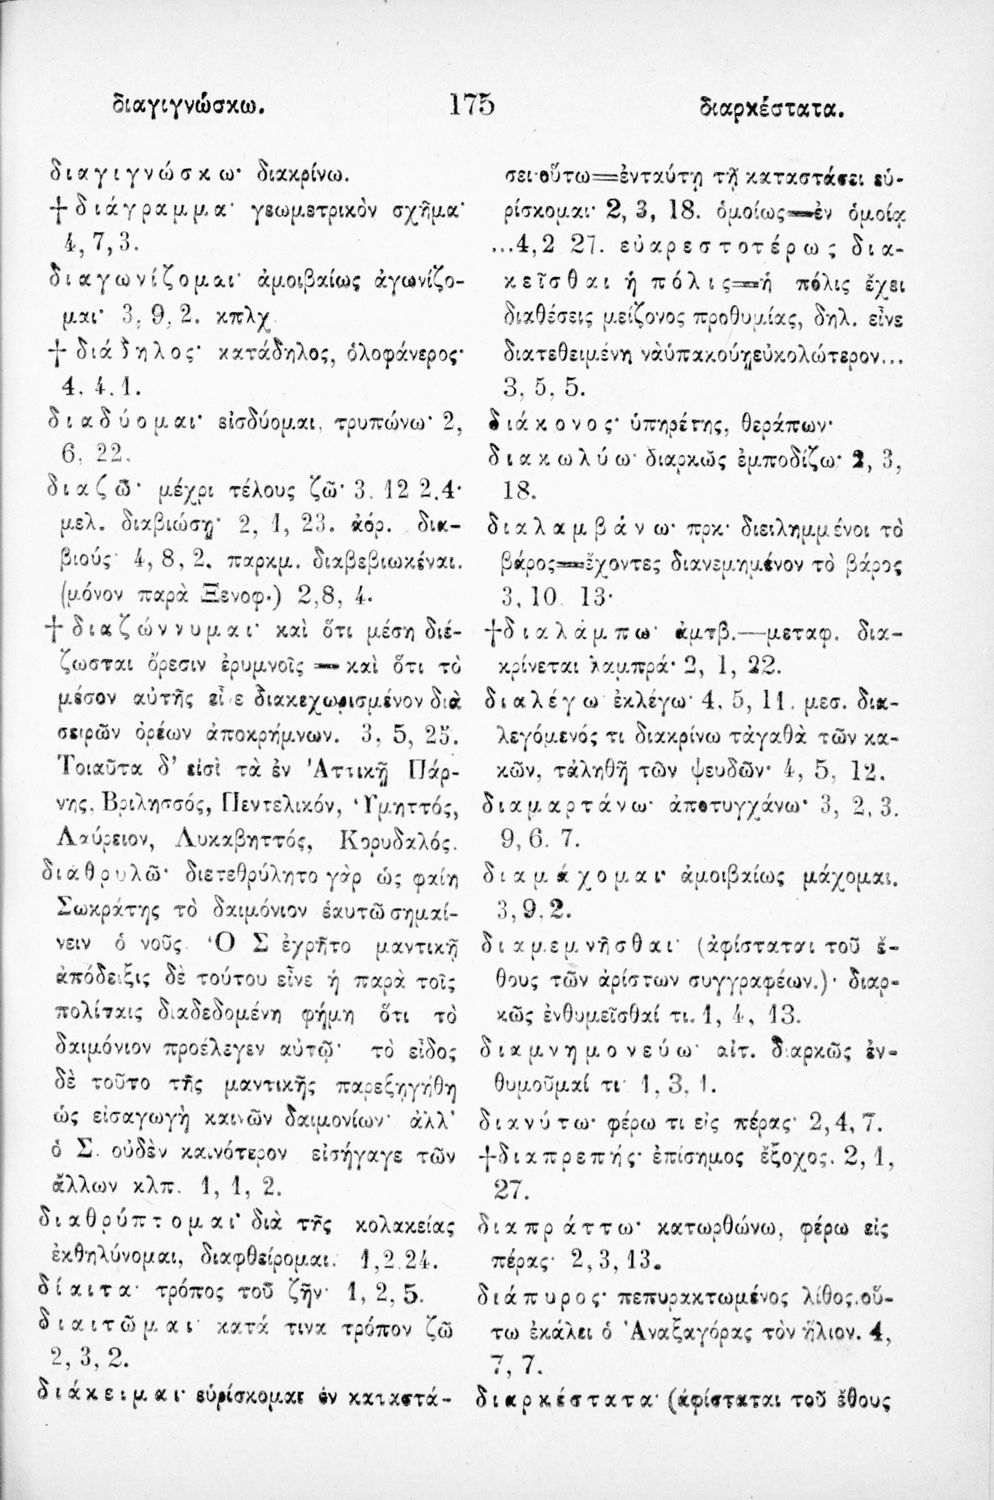 διαγιγνώσκω. 175 διαρκέστατα.
διαγιγνώσκω· διακρίνω.
†διάγραμμα· γεωμετρικὸν σχῆμα·
4,7,3.
διαγωνίζομαι· ἀμοιβαίως ἀγωνίζο-
μαι· 3, 9, 2. κπλχ.
†διάδηλος· κατάδηλος, ὁλοφάνερος·
4. 4. 1.
διαδύομαι· εἰσδύομαι, τρυπώνω· 2,
6, 22.
διαζῶ· μέχρι τέλους ζῶ· 3. 12 2.4·
μελ. διαβιώσῃ· 2, 1, 23. ἀόρ. δια-
βιούς· 4, 8, 2. παρκμ. διαβεβιωκέναι.
(μόνον παρὰ Ξενοφ.) 2,8, 4.
†διαζώννυμαι· καὶ ὅτι μέση διέ-
ζωσται ὄρεσιν ἐρυμνοῖς = καὶ ὅτι τὸ
μέσον αὐτῆς εἶ ε διακεχωρισμένον διὰ
σειρῶν ὀρέων ἀποκρήμνων. 3, 5, 25.
Τοιαῦτα δ' εἰσὶ τὰ ἐν Ἀττικῇ Πάρ-
νης, Βριλησσός, Πεντελικόν, Ὑμηττός,
Λαύρειον, Λυκαβηττός, Κορυδαλός.
διαθρυλῶ· διετεθρύλητο γὰρ ὡς φαίη
Σωκράτης τὸ δαιμόνιον ἑαυτῷ σημαί-
νειν ὁ νοῦς. Ὁ Σ ἐχρῆτο μαντικῇ
ἀπόδειξις δὲ τούτου εἶνε ἡ παρὰ τοῖς
πολίταις διαδεδομένη φήμη ὅτι τὸ
δαιμόνιον προέλεγεν αὐτῷ· τὸ εἶδος
δὲ τοῦτο τῆς μαντικῆς παρεξηγήθη
ὡς εἰσαγωγὴ καινῶν δαιμονίων· ἀλλ'
ὁ Σ. οὐδὲν καινότερον εἰσήγαγε τῶν
ἄλλων κλπ. 1, 1, 2.
διαθρύπτομαι· διὰ τῆς κολακείας
ἐκθηλύνομαι, διαφθείρομαι. 1,2.24.
δίαιτα· τρόπος τοῦ ζῆν· 1, 2, 5.
διαιτῶμαι· κατά τινα τρόπον ζῶ
2, 3, 2.
διάκειμαι· εὑρίσκομαι ἐν καταστά-
σει·οὕτω=ἐνταύτῃ τῇ καταστάσει εὑ-
ρίσκομαι· 2, 3, 18. ὁμοίως=ἐν ὁμοίᾳ
...4,2 27. εὐαρεστοτέρως δια-
κεῖσθαι ἡ πόλις=ἡ πόλις ἔχει
διαθέσεις μείζονος προθυμίας, δηλ. εἶνε
διατεθειμένη νὰὑπακούῃεὐκολώτερον...
3, 5, 5.
διάκονος· ὑπηρέτης, θεράπων·
διακωλύω· διαρκῶς ἐμποδίζω· 2, 3,
18.
διαλαμβάνω· πρκ· διειλημμένοι τὸ
βάρος=ἔχοντες διανεμημένον τὸ βάρος
3, 10. 13·
†διαλάμπω· ἀμτβ.—μεταφ. δια-
κρίνεται λαμπρά· 2, 1, 22.
διαλέγω ἐκλέγω· 4. 5, 11. μεσ. δια-
λεγόμενός τι διακρίνω τἀγαθὰ τῶν κα-
κῶν, τἀληθῆ τῶν ψευδῶν· 4, 5, 12.
διαμαρτάνω· ἀποτυγχάνω· 3, 2, 3.
9, 6. 7.
διαμάχομαι· ἀμοιβαίως μάχομαι.
3, 9, 2.
διαμεμνῆσθαι· (ἀφίσταται τοῦ ἔ-
θους τῶν ἀρίστων συγγραφέων.)· διαρ-
κῶς ἐνθυμεῖσθαί τι. 1, 4, 13.
διαμνημονεύω· αἰτ. διαρκῶς ἐν-
θυμοῦμαί τι· 1, 3, 1.
διανύτω· φέρω τι εἰς πέρας· 2,4, 7.
†διαπρεπής· ἐπίσημος ἔξοχος. 2, 1,
27.
διαπράττω· κατωρθώνω, φέρω εἰς
πέρας· 2, 3, 13.
διάπυρος· πεπυρακτωμένος λίθος.οὕ-
τω ἐκάλει ὁ Ἀναξαγόρας τὸν ἥλιον. 4,
7, 7.
διαρκέστατα· (ἀφίσταται τοῦ ἔθους